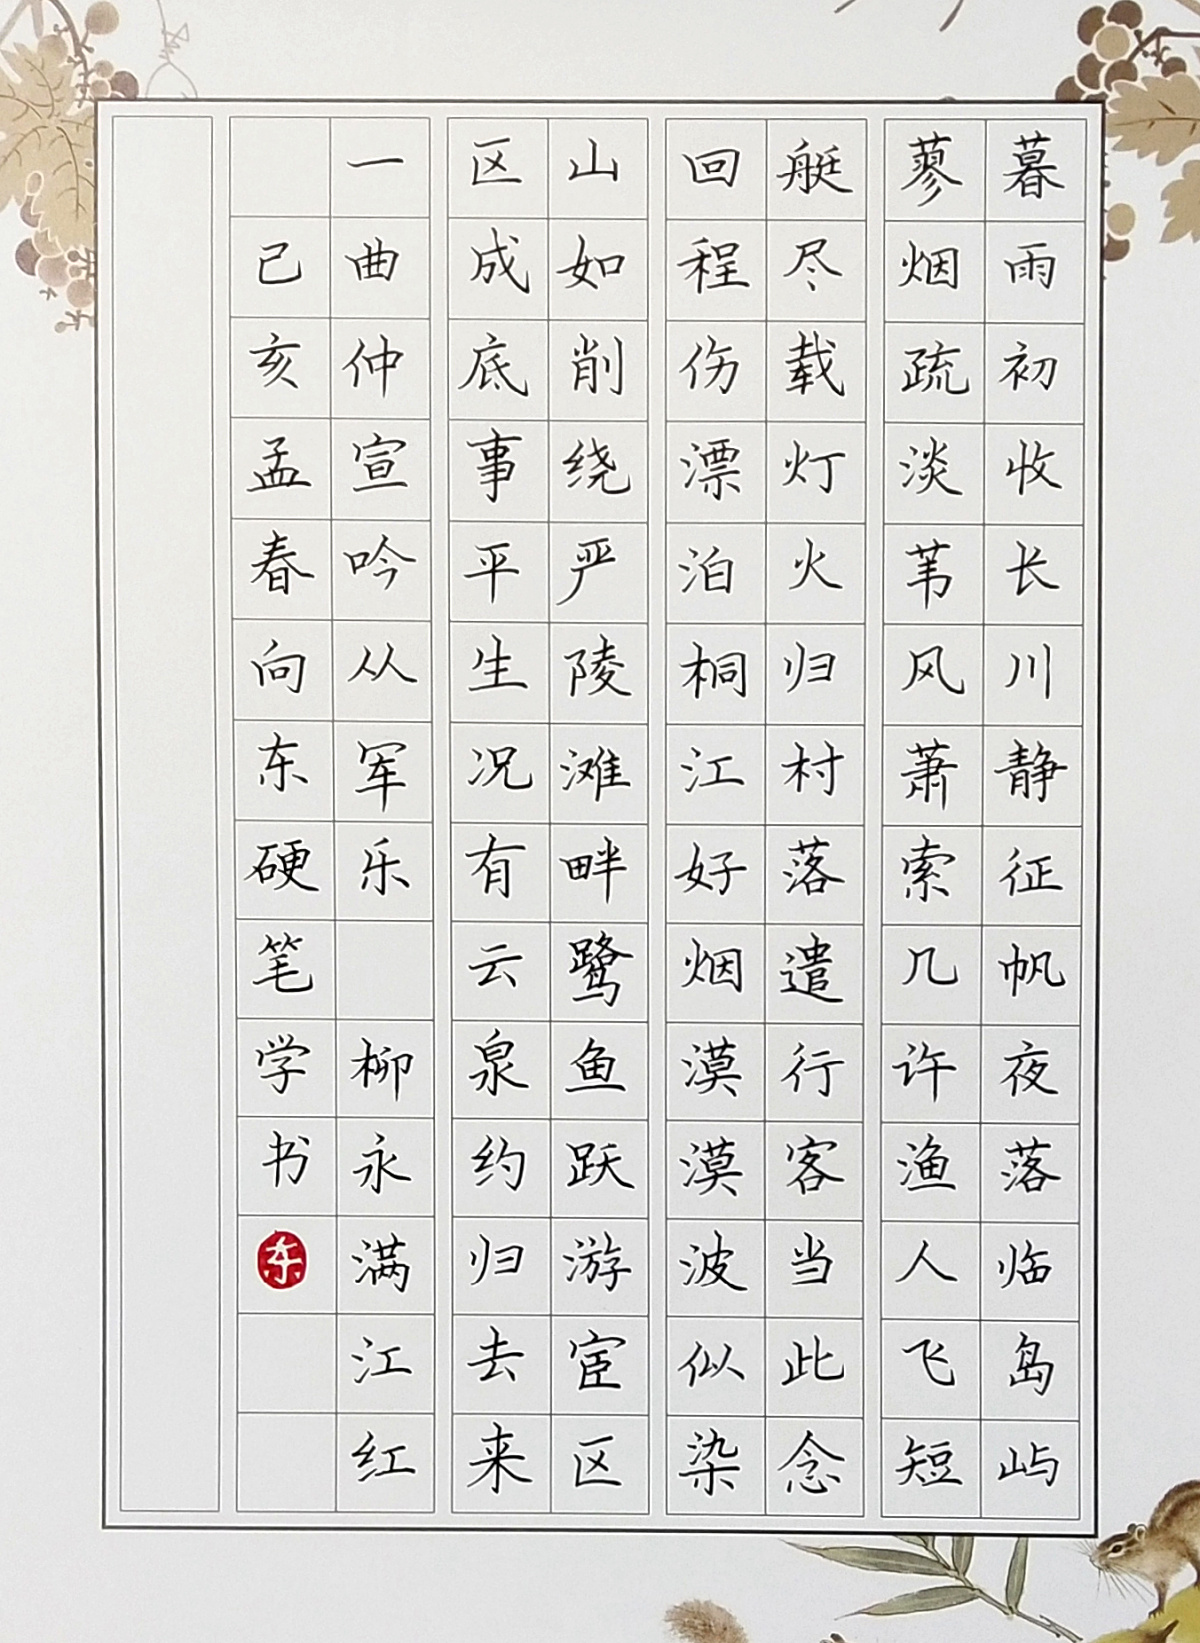 暮雨初收长川静征帆夜落临岛屿
蓼烟疏淡苇风萧索几许渔人飞短
艇尽载灯火归村落遣行客当此念
回程伤漂泊桐江好烟漠漠波似染
山如削绕严陵滩畔鹭鱼跃游宦区
区成底事平生况有云泉约归去来
一曲仲宣吟从军乐 柳永满江红
己亥孟春向东硬笔学书
东